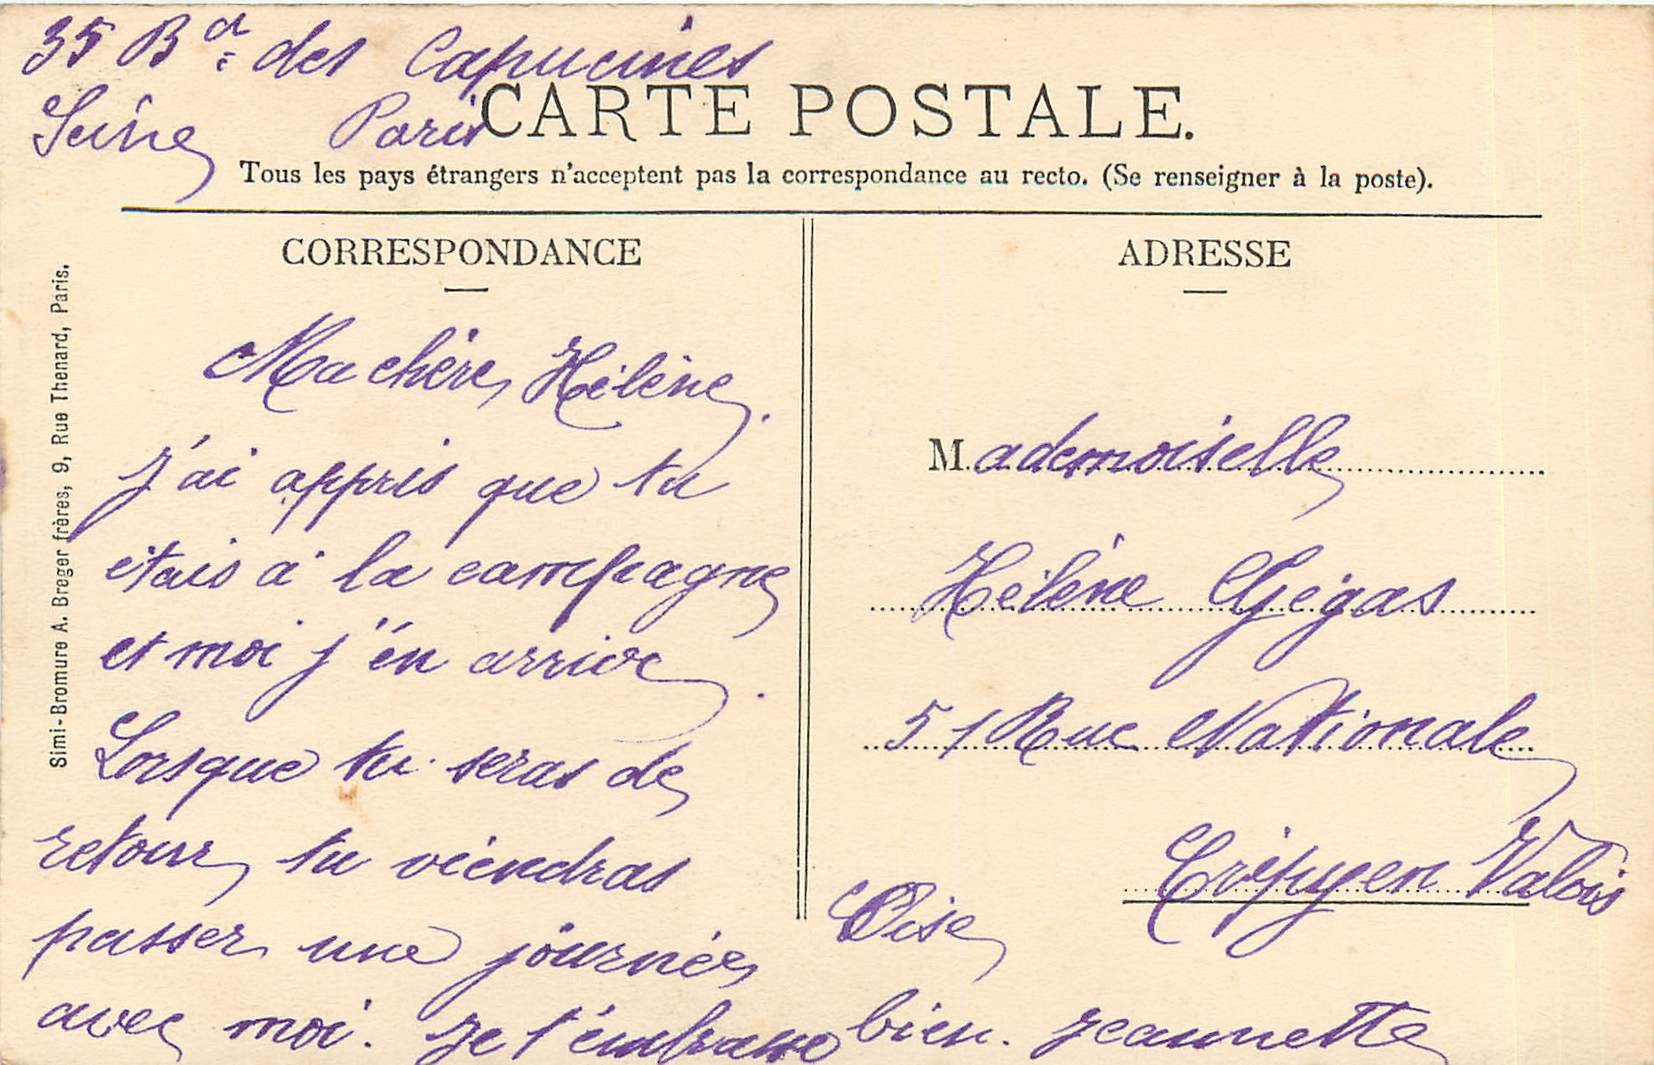 35 Bd. des Capucines
Seine Paris
CARTE POSTALE.
Tous les pays étrangers n'acceptent pas la correspondance au recto. (Se renseigner à la poste).
CORRESPONDANCE
Ma chère Hélène.
j'ai appris que tu
étais à la campagne
et moi j'en arrive.
Lorsque tu seras de
retour tu viendras
passer une journée
avec moi. Je t'embrasse bien. Jeannette
ADRESSE
Mademoiselle
Hélène Gégas
51 Rue Nationale
Crépy en Valois
Oise
Simi-Bromure A. Breger frères, 9, Rue Thenard, Paris.